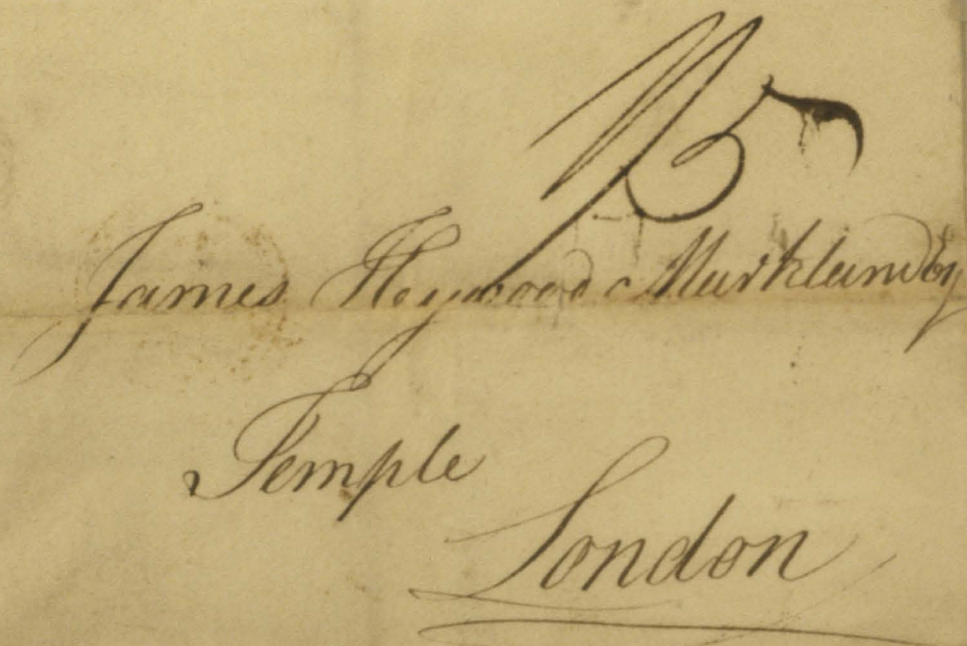 1/5
James Heywood Markland Esq
Temple
London